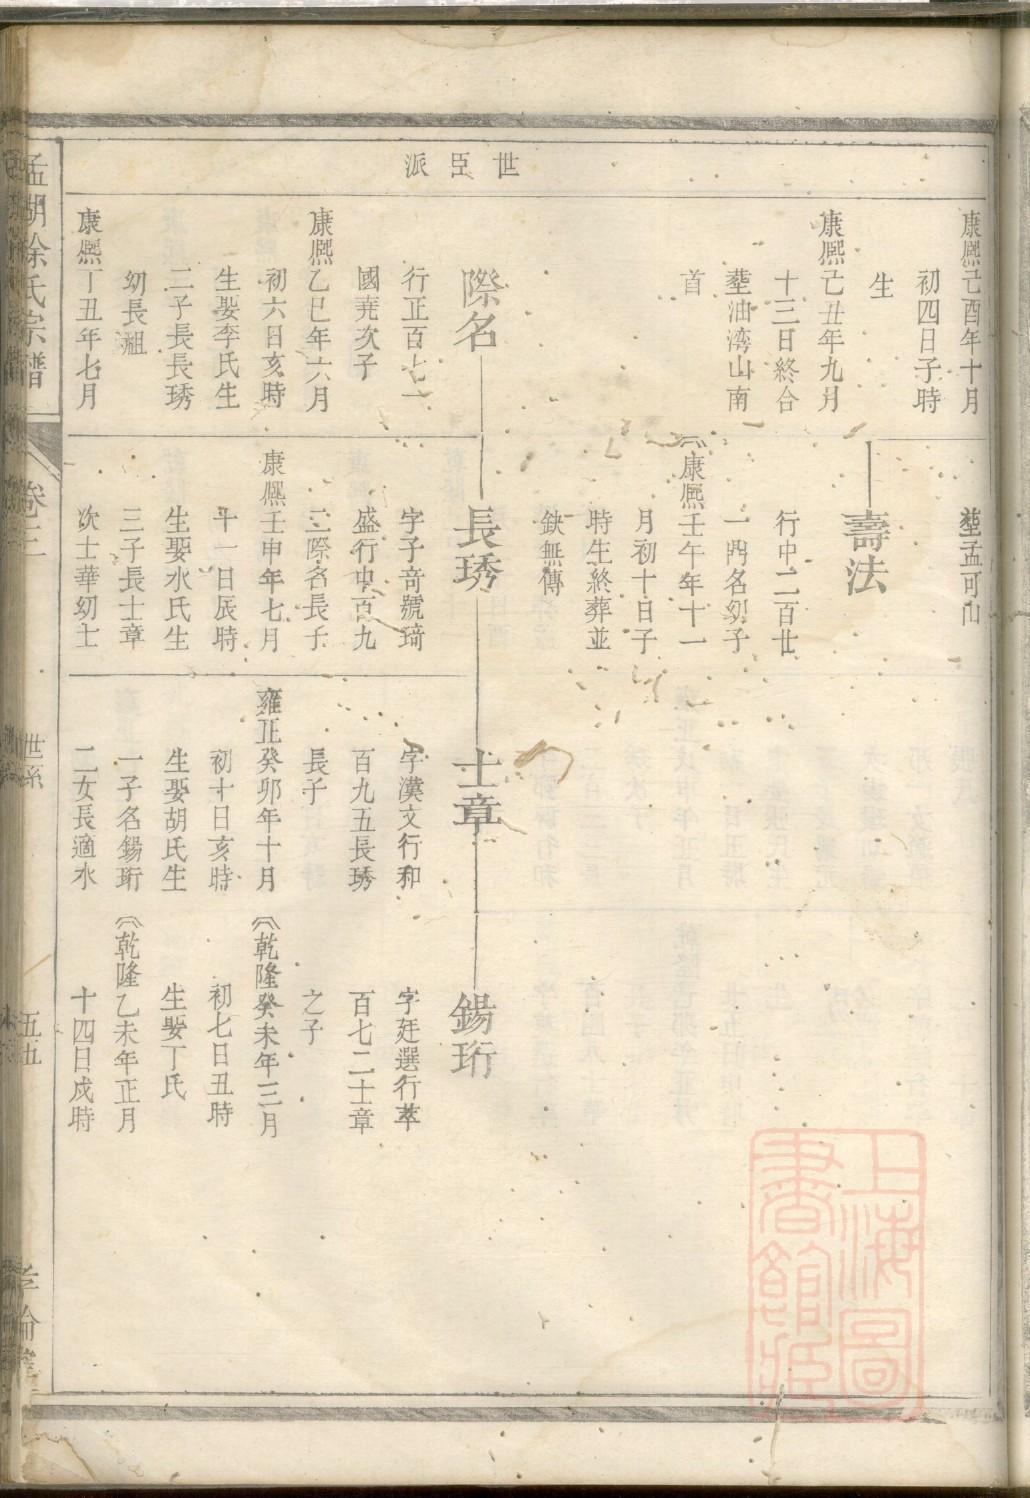 世臣派
康熙己酉年十月
初四日子時
生
康熙己丑年九月
十三日終合
塟油湾山南
首
際名
行正百七一
國堯次子
康熙乙巳年六月
初六日亥時
生娶李氏生
二子長長琇
幼長祖
康熙丁丑年七月
塟孟可山
壽法
行中二百廿
一門名幼子
康熙壬午年十一
月初十日子
時生終葬並
缺無傳
長琇
字子奇號琦
盛行中百九
二際名長子
康熙壬申年七月
十一日辰時
生娶水氏生
三子長士章
次士華幼士
士章
字漢文行和
百九五長琇
長子
雍正癸卯年十月
初十日亥時
生娶胡氏生
一子名錫珩
二女長適水
錫珩
字廷選行萃
百七二士章
之子
乾隆癸未年三月
初七日丑時
生娶丁氏
乾隆乙未年正月
十四日戌時
孟湖徐氏宗譜
卷三
世系
五五
上海圖書館藏